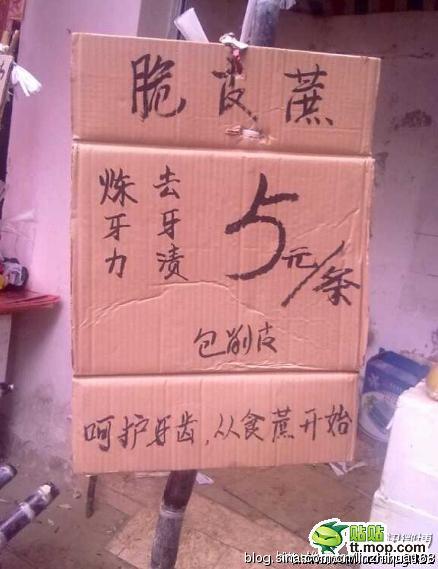 脆皮蔗
炼牙力
去牙渍
5元/条
包削皮
呵护牙齿,从食蔗开始
贴贴
tt.mop.com